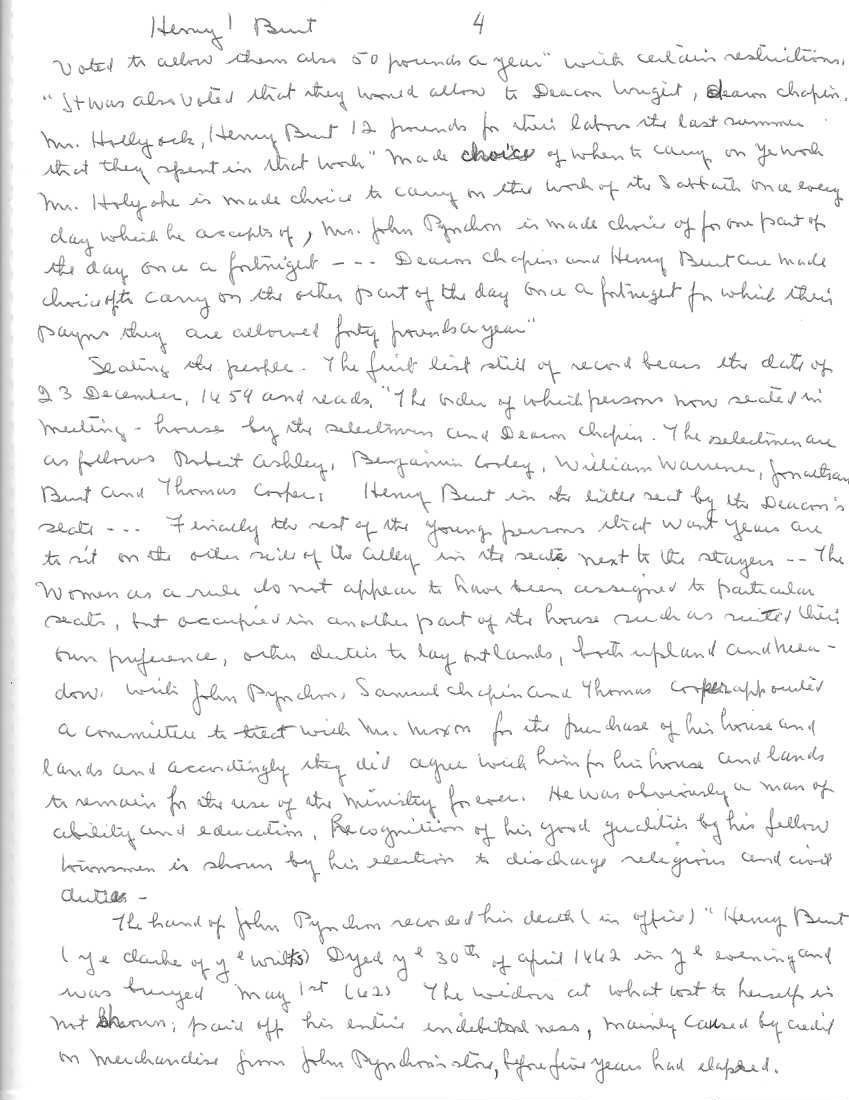 Henry¹ Burt 4
Voted to allow them also 50 pounds a year" with certain restrictions.
"It was also voted that they would allow to Deacon Wright, Deacon Chapin,
Mr. Hollyock, Henry Burt 12 pounds for their labors the last summer
that they spent in that work" Made choice of when to carry on ye work
Mr. Holyoke is made choice to carry on the work of the Sabbath once every
day which he accepts of, Mr. John Pynchon is made choice of for one part of
the day once a fortnight --- Deacon Chapin and Henry Burt are made
choice of to carry on the other part of the day once a fortnight for which their
payns they are allowed forty pounds a year"
Seating the people. The first list still of record bears the date of
23 December, 1659 and reads, "The order of which persons now seated in
meeting-house by the selectmen and Deacon Chapin. The selectmen are
as follows Robert Ashley, Benjamin Cooley, William Warrener, Jonathan
Burt and Thomas Cooper, Henry Burt in the little seat by the Deacon's
seate --- Finally the rest of the young persons that want years are
to sit on the other side of the alley in the seate next to the stayers -- The
Women as a rule do not appear to have been assigned to particular
seats, but occupied in another part of the house such as suited their
own preference, other duties to lay out lands, both upland and mea-
dow. with John Pynchon, Samuel Chapin and Thomas Cooper appointed
a committee to treat with Mr. Moxon for the purchase of his house and
lands and accordingly they did agree with him for his house and lands
to remain for the use of the ministry forever. He was obviously a man of
ability and education, Recognition of his good qualities by his fellow
townsmen is shown by his election to discharge religious and civil
duties -
The hand of John Pynchon recorded his death (in office) "Henry Burt
(ye clarke of ye writts) Dyed ye 30th of april 1662 in ye evening and
was buryed May 1st (62) The widow at what cost to herself is
not known; paid off his entire indebtedness, mainly caused by credit
on merchandise from John Pynchon's store, before five years had elapsed.